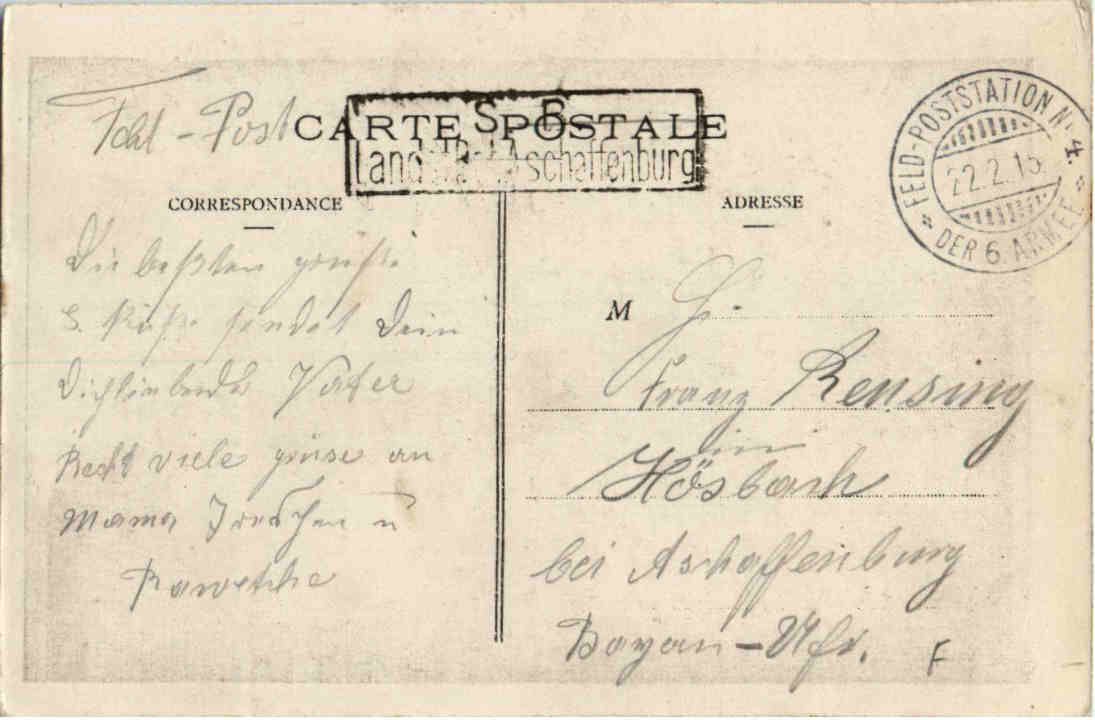 Feld-Post
CARTE POSTALE
S. B.
Aschaffenburg
FELD-POSTSTATION No 4.
22.2.15
DER 6. ARMEE
CORRESPONDANCE
ADRESSE
Die beßten grüße
& Küße sendet Dein
Dichliebender Vater
Recht viele grüse an
Mama u
M
Franz Rensing
in
Hösbach
bei Aschaffenburg
Bayern - Ufr.
F